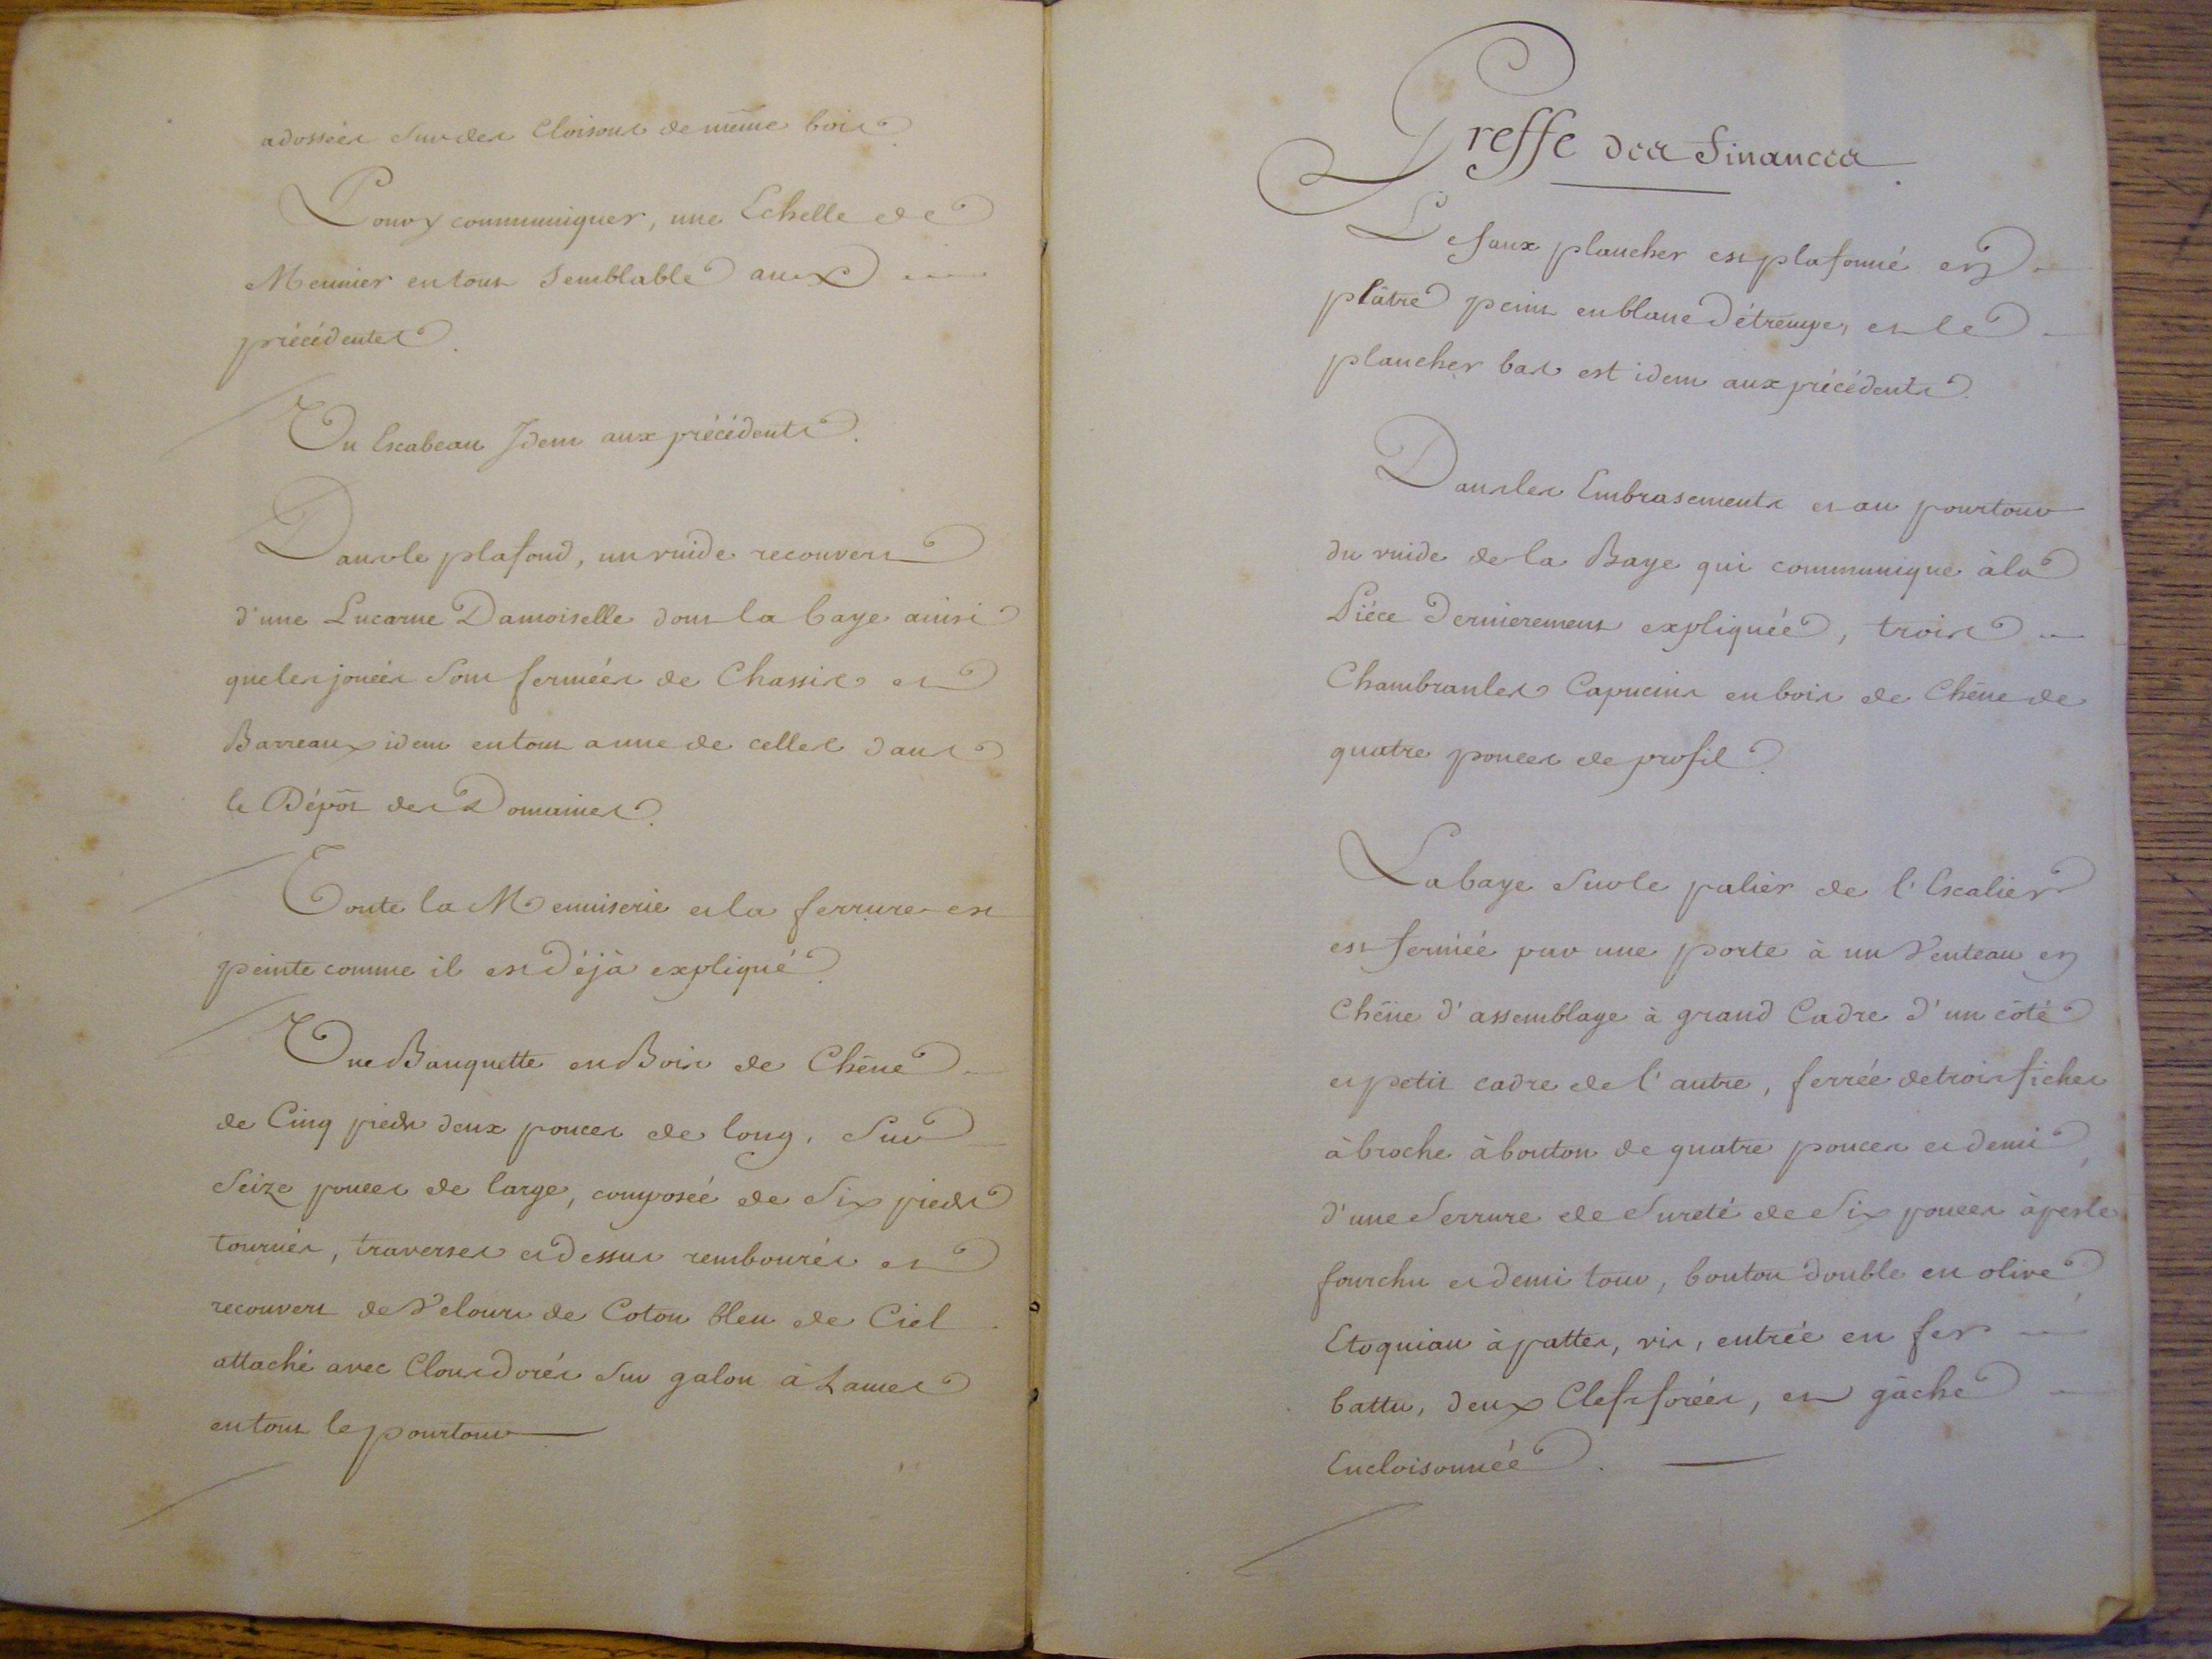 adossées sur des Cloisons de même bois.
Pour y communiquer, une Echelle de
Meunier en tout Semblable aux
précédentes.
Un Escabeau Idem aux précédents.
Dans le plafond, un vuide recouvert
d'une Lucarne Damoiselle dont la baye ainsi
que les jouées sont fermées de Chassis et
Barreaux idem en tout a une de celles dans
le Dépôt des Domaines.
Toute la Menuiserie et la ferrure est
peinte comme il est déjà expliqué.
Une Banquette en Bois de Chêne
de Cinq pieds deux pouces de long, Sur
Seize pouces de large, composée de Six pieds
tournés, traverses et dessus rembourés et
recouvert de Velours de Coton bleu de Ciel
attaché avec Clous dorés Sur galon à Lames
en tout le pourtour
Greffe des Finances.
Le faux plancher est plafonné en
plâtre peint en blanc d'étrempe, et le
plancher bas est idem aux précédents.
Dans les Embrasements et au pourtour
du vuide de la Baye qui communique à la
Piéce dernierement expliquée, trois
Chambranles Capucins en bois de Chêne de
quatre pouces de profil.
La baye Sur le palier de l'Escalier
est fermée par une porte à un Venteau en
Chêne d'assemblage à grand Cadre d'un côté
et petit cadre de l'autre, ferrée de trois fiches
à broche à bouton de quatre pouces et demi,
d'une Serrure de Sureté de Six pouces à pesle
fourchu et demi tour, bouton double en olive,
Etoquiau à pattes, vis, entrée en fer
battu, deux Clefs forées, et gâche
Encloisonnée.